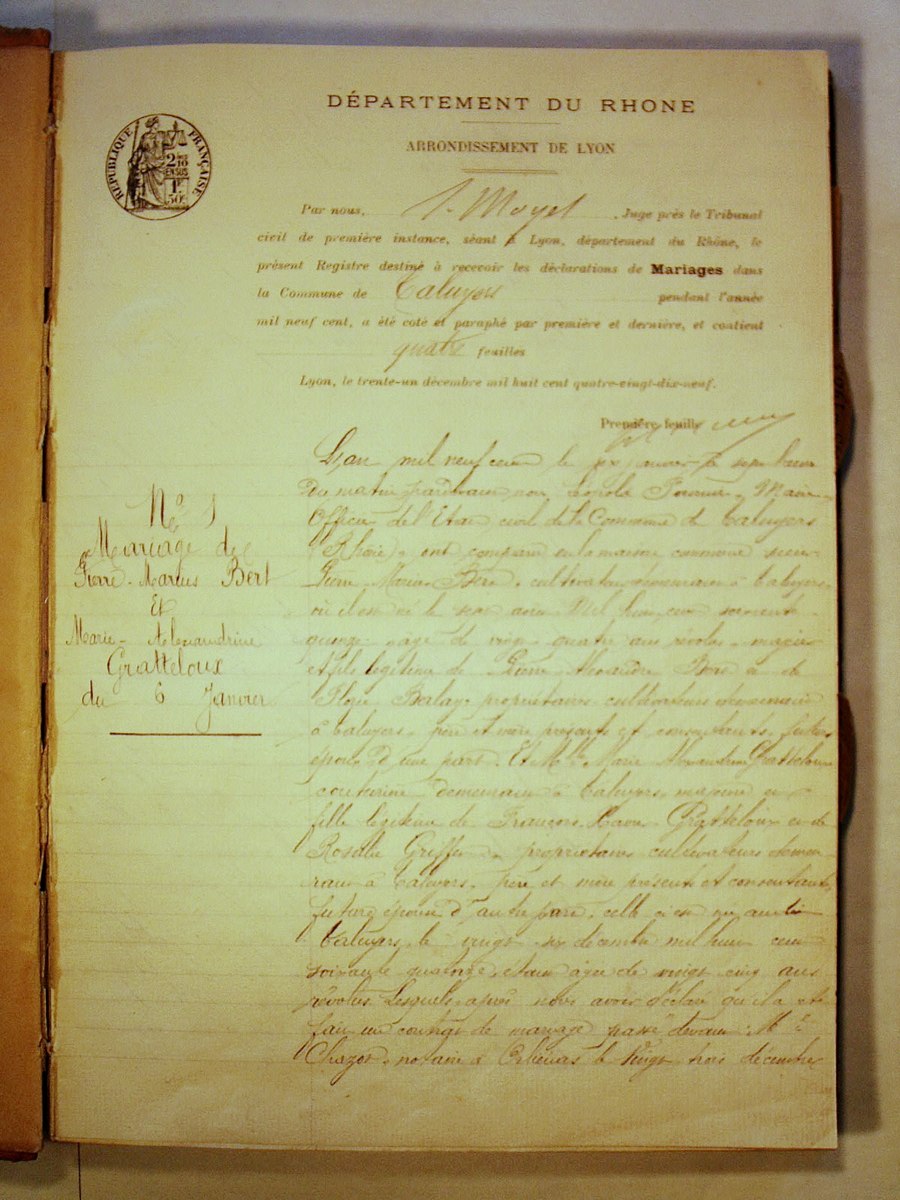 DÉPARTEMENT DU RHONE
ARRONDISSEMENT DE LYON
RÉPUBLIQUE FRANÇAISE
2/10
EN SUS
1F
50c
Par nous, Juge près le Tribunal
civil de première instance, séant à Lyon, département du Rhône, le
présent Registre destiné à recevoir les déclarations de Mariages dans
la Commune de Taluyers pendant l'année
mil neuf cent, a été coté et paraphé par première et dernière, et contient
quatre feuilles
Lyon, le trente-un décembre mil huit cent quatre-vingt-dix-neuf.
Première feuille
No 1
Mariage de
Pierre-Marius Bert
Et
Marie-Alexandrine
Gratteloux
du 6 Janvier
L'an mil neuf cent le six janvier à sept heures
du matin pardevant nous, Maire
Officier de l'Etat civil de la Commune de Taluyers
(Rhône), ont comparu en la maison commune sieur
Pierre Marius Bert, cultivateur demeurant à Taluyers
où il est né le sept mil huit cent soixante
quinze, âgé de vingt-quatre ans révolus, majeur
et fils légitime de Pierre Alexandre Bert et de
propriétaires cultivateurs demeurant
à Taluyers, père et mère présents et consentants, futur
époux d'une part. Et Mlle Marie Alexandrine Gratteloux
couturière demeurant à Taluyers, majeure et
fille légitime de François Gratteloux et de
Rosalie propriétaires cultivateurs demeu-
rant à Taluyers, père et mère présents et consentants,
future épouse d'autre part, celle ci est née audit
Taluyers le vingt-six décembre mil huit cent
soixante quatorze, étant âgée de vingt cinq ans
révolus. Lesquels après nous avoir déclaré qu'il a été
fait un contrat de mariage passé devant Me
Chazot, notaire à Orliénas le vingt trois décembre